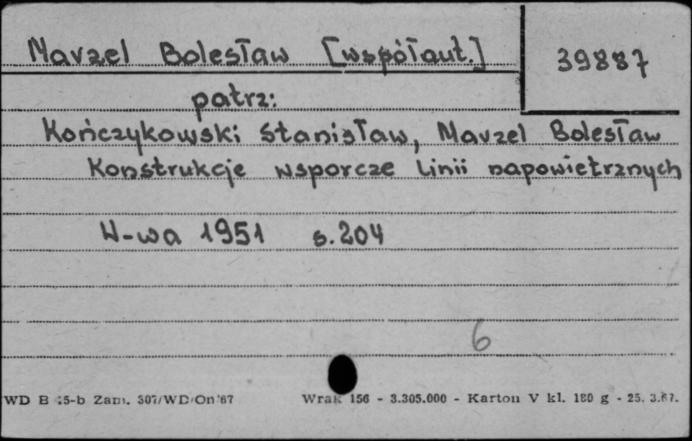 Marzel Bolesław [współaut.]
39887
patrz:
Kończykowski Stanisław, Marzel Bolesław
Konstrukcje wsporcze linii napowietrznych
W-wa 1951 s. 204
6
WD B 15-b Zam. 307/WD/On/67 Wrak 156 - 3.305.000 - Karton V kl. 180 g - 25. 3.67.